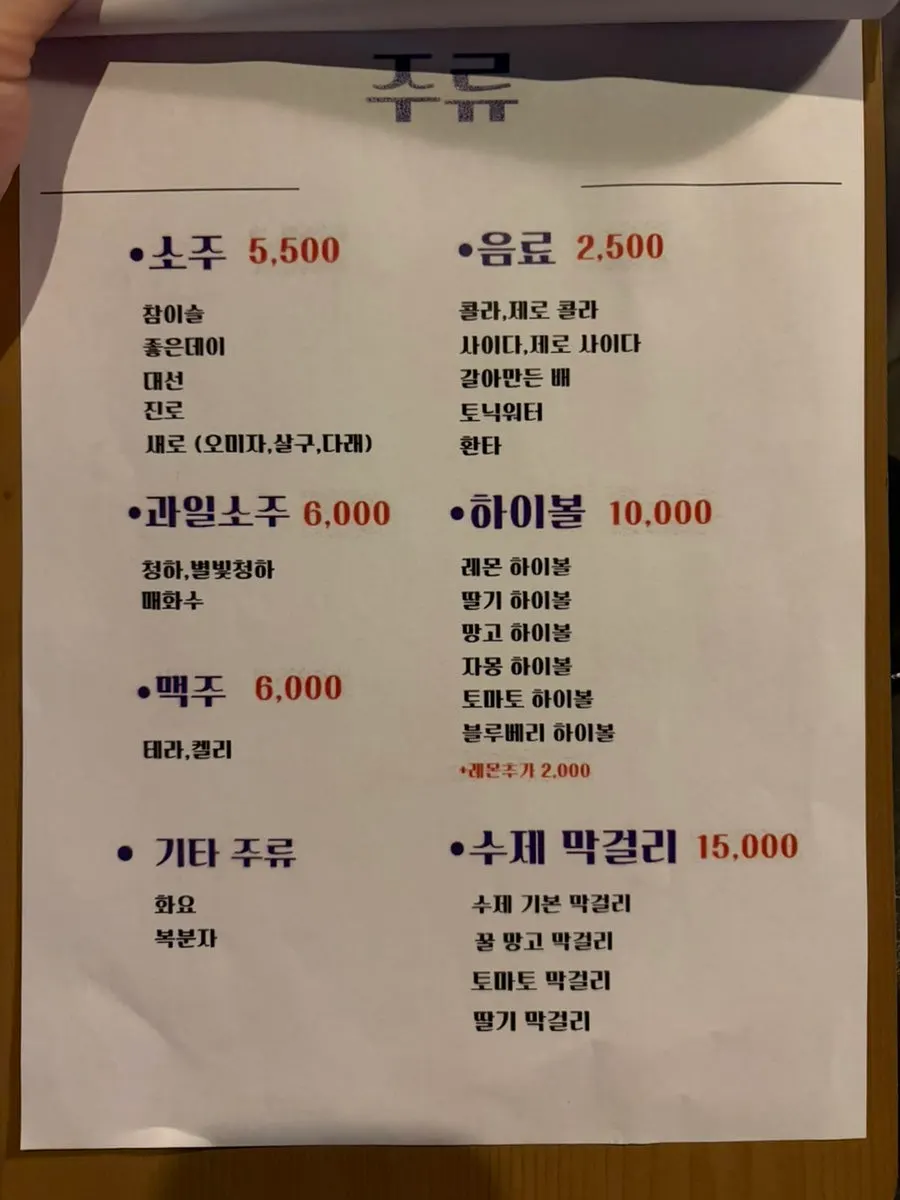 주류
•소주 5,500
참이슬
좋은데이
대선
진로
새로 (오미자,살구,다래)
•과일소주 6,000
청하,별빛청하
매화수
•맥주 6,000
테라,켈리
• 기타 주류
화요
복분자
•음료 2,500
콜라,제로 콜라
사이다,제로 사이다
갈아만든 배
토닉워터
환타
•하이볼 10,000
레몬 하이볼
딸기 하이볼
망고 하이볼
자몽 하이볼
토마토 하이볼
블루베리 하이볼
+레몬추가 2,000
•수제 막걸리 15,000
수제 기본 막걸리
꿀 망고 막걸리
토마토 막걸리
딸기 막걸리